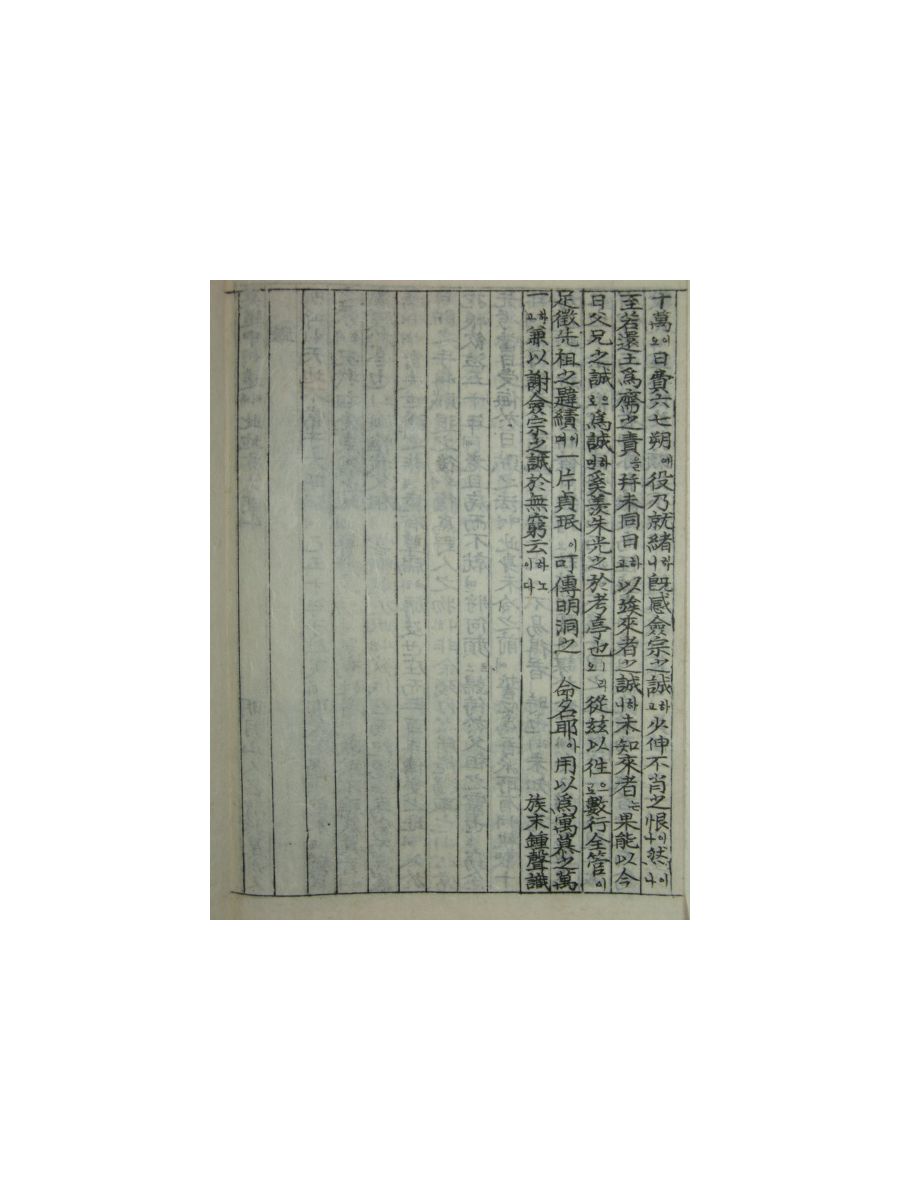 十萬이오日費六七朔에役乃就緖하니旣感僉宗之誠하고少伸不肖之恨이나然이나
至若還土爲齋之責을持未同日하고以竢來者之誠하나未知來者는果能以今
日父兄之誠으로爲誠하면奚羨朱光之於考亭也리오從玆以往으로數行全管이
足徵先祖之韙績이며一片貞珉이可傳明洞之 命名耶아用以爲寓慕之萬
一하고兼以謝僉宗之誠於無窮云하노이다 族末鍾聲識